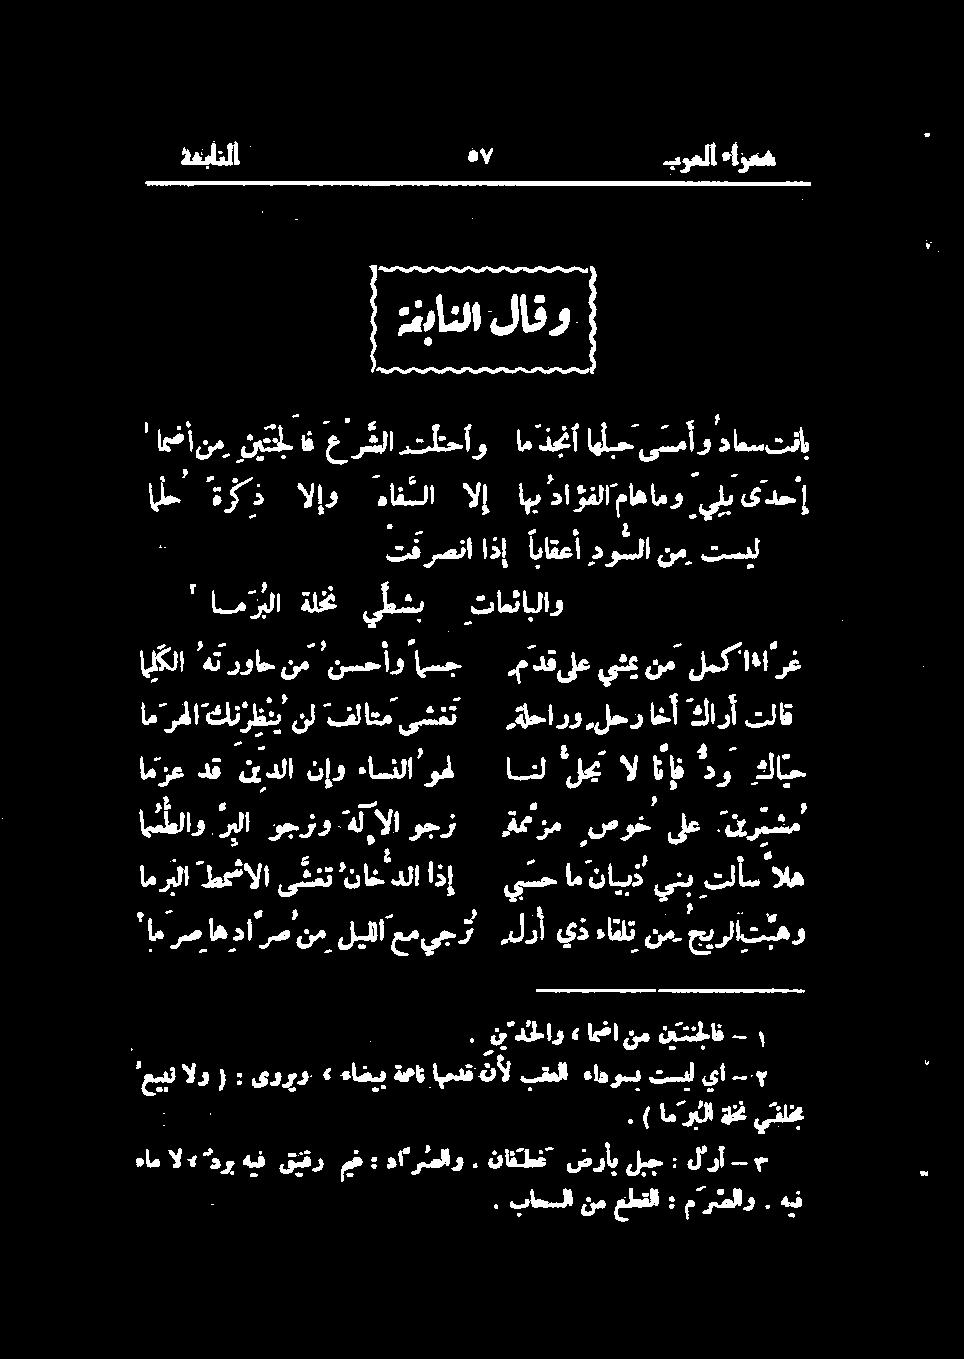 شعراء العرب ٥٧ النابغة
وقال النابغة
بانت سعاد وأمسى حبلها آنجذما وأحتلت الشرع فالجنتين من أضما ١
إحدى بلي وما هام الفؤاد بها إلا السفاه وإلا ذكرة حلما
ليست من السود أعقاباً إذا انصرفت
والبائعات بشطي نخلة البرما ٢
غراء اكمل من يمشي على قدم جسماً وأحسن من حاورته الكلما
قالت أراك أخا رحل وراحلة تغشى متالف لن ينظرنك الهرما
حياك ود فإنا لا يحل لنا لهو النساء وإن الدين قد عزما
مشمرين على خوص مزممة نرجو الإله ونرجو البر والطعما
هلا سألت بني ذبيان ما حسبي إذا الدخان تغشى الأشمط البرما
وهبت الريح من تلقاء ذي أرل تزجي مع الليل من صرادها صرما ٣
١ – فالجنتين من اضما ، والخدين .
٢ – اي ليست بسوداء العقب لأن قدمها ناعمة بيضاء ، ويروى : ( ولا تبيع
بخلفي نخلة البرما ) .
٣ – أرل : جبل بأرض غطفان . والصراد : غيم رقيق فيه برد ، لا ماء
فيه . والصرم : القطع من السحاب .